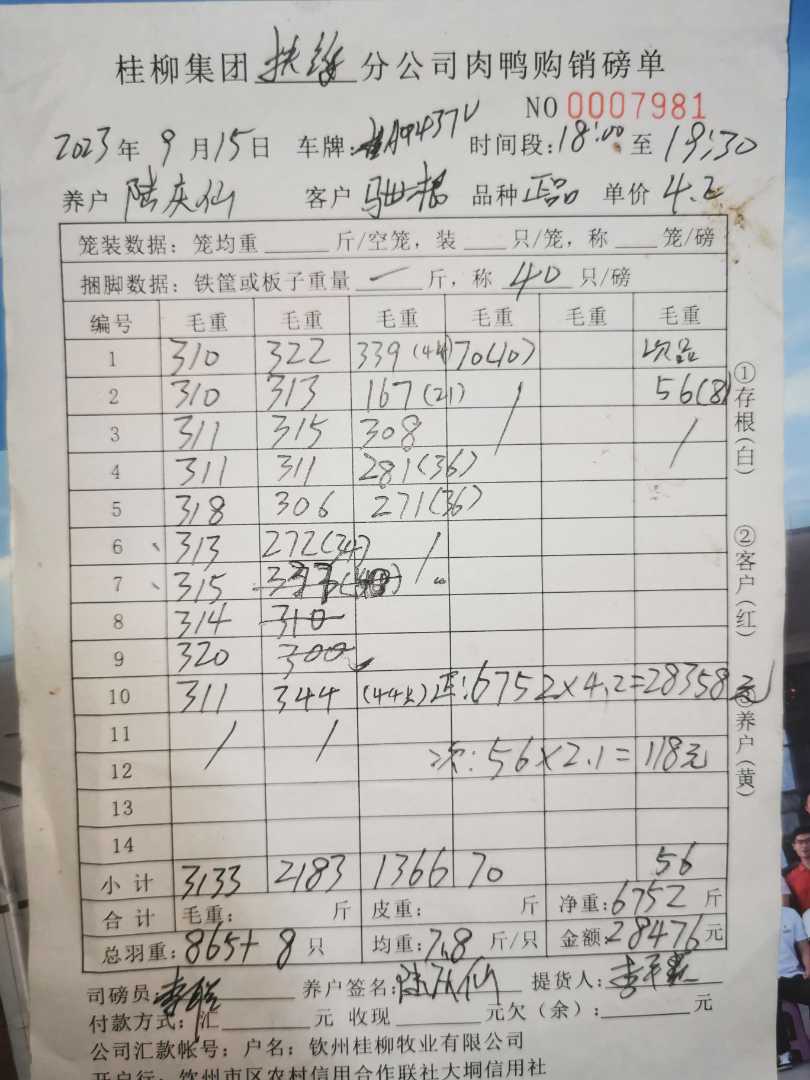 桂柳集团 扶绥 分公司肉鸭购销磅单
NO 0007981
2023年 9 月15日 车牌: 时间段:18:00至19:30
养户 陆庆仙 客户 品种 正品 单价 4.2
笼装数据: 笼均重 斤/空笼, 装 只/笼, 称 笼/磅
捆脚数据: 铁筐或板子重量 一 斤, 称 40 只/磅
编号 毛重 毛重 毛重 毛重 毛重 毛重
1 310 322 339(44) 70(10) 次品
2 310 313 167(21) / 56(8)
3 311 315 308 /
4 311 311 281(36)
5 318 306 271(36)
6 、 313 272(34) /
7 、 315
8 314 310
9 320 300
10 311 344 (44只) 正:6752×4.2=28358元
11 / /
12 次:56×2.1=118元
13
14
小计 3133 2183 1366 70 56
合计 毛重: 斤 皮重: 斤 净重:6752 斤
总羽重:865+8 只 均重:7.8 斤/只 金额:28476元
司磅员: 养户签名:陆庆仙 提货人:
付款方式: 汇 元 收现 元欠(余): 元
公司汇款帐号: 户名: 钦州桂柳牧业有限公司
开户行: 钦州市区农村信用合作联社大垌信用社
①存根(白)
②客户(红)
③养户(黄)